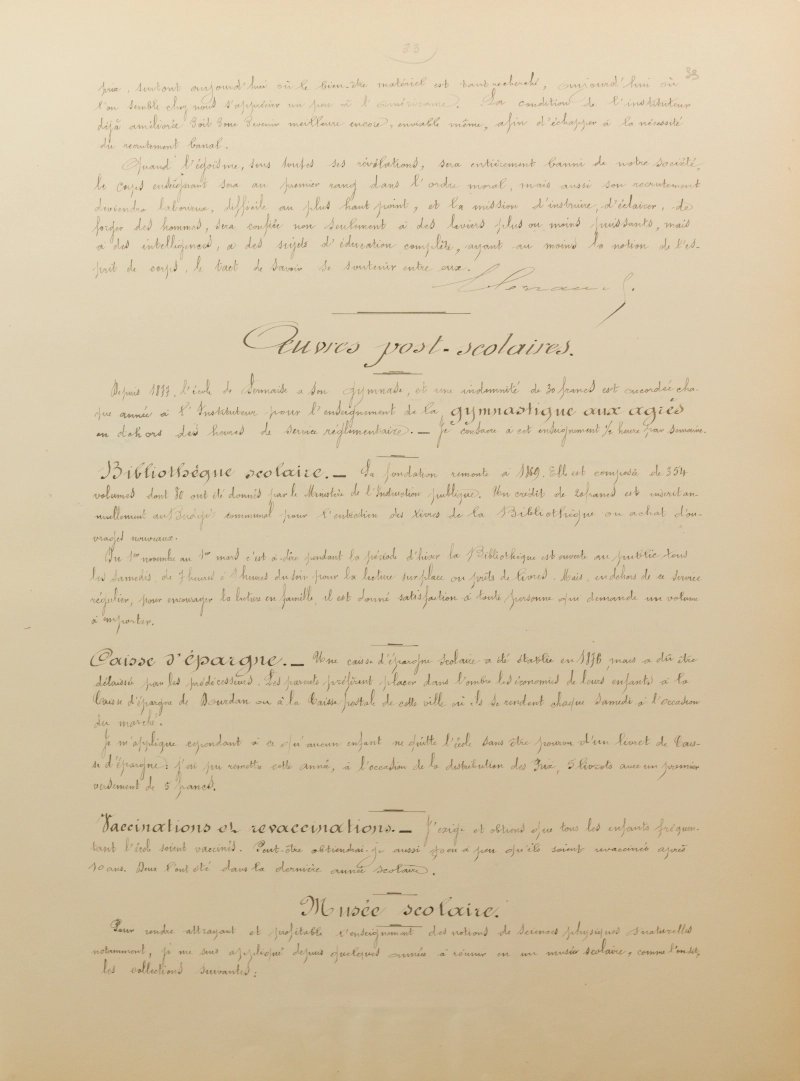 28
39
prix, surtout aujourd'hui où le bien-être matériel est tant recherché, aujourd'hui où
l'on semble chez nous s'apprécier un peu à l'américaine. La condition de l'instituteur
déjà améliorée doit donc devenir meilleure encore, enviable même, afin d'échapper à la nécessité
du recrutement banal.
Quand l'égoïsme, sous toutes ses révélations, sera entièrement banni de notre société,
le corps enseignant sera au premier rang dans l'ordre moral, mais aussi son recrutement
deviendra laborieux, difficile au plus haut point, et la mission d'instruire, d'éclairer, de
forger des hommes, sera confiée non seulement à des leviers plus ou moins puissants, mais
à des intelligences, à des sujets d'éducation complète, ayant au moins la notion de l'es-
prit de corps, le tact de savoir se soutenir entre eux.
Œuvres post-scolaires.
Depuis 1877, l'école de a son gymnase, et une indemnité de 30 francs est accordée cha-
que année à l'Instituteur pour l'enseignement de la gymnastique aux agrès
en dehors des heures de service réglementaire. — Je consacre à cet enseignement ½ heure par semaine.
Bibliothèque scolaire. — Sa fondation remonte à 1869. Elle est composée de 354
volumes dont 70 ont été donnés par le Ministère de l'Instruction publique. Un crédit de 20 francs est inscrit an-
nuellement au Budget communal pour l'entretien des livres de la Bibliothèque ou achat d'ou-
vrages nouveaux.
Du 1er novembre au 1er mars c'est à dire pendant la période d'hiver la Bibliothèque est ouverte au public tous
les samedis, de 7 heures à heures du soir pour la lecture sur place ou prêts de livres. Mais, en dehors de ce service
régulier, pour encourager la lecture en famille, il est donné satisfaction à toute personne qui demande un volume
à emporter.
Caisse d'épargne. — Une caisse d'épargne scolaire a été établie en 1876, mais a dû être
délaissée par les prédécesseurs. Les parents préfèrent placer dans l'ombre les économies de leurs enfants à la
Caisse d'épargne de Dourdan ou à la Caisse postale de cette ville où ils se rendent chaque samedi à l'occasion
du marché.
Je m'applique cependant à ce qu'aucun enfant ne quitte l'école sans être pourvu d'un livret de Cais-
se d'épargne; j'ai pu remettre cette année, à l'occasion de la distribution des Prix, 5 livrets avec un premier
versement de 5 francs.
Vaccinations et revaccinations. — J'exige et obtiens que tous les enfants fréquen-
tant l'école soient vaccinés. Peut-être obtiendrai-je aussi peu à peu qu'ils soient revaccinés après
10 ans. Deux l'ont été dans la dernière année scolaire.
Musée scolaire.
Pour rendre attrayant et profitable l'enseignement des notions de sciences physiques & naturelles
notamment, je me suis appliqué depuis quelques années à réunir en un musée scolaire, comme l'on dit,
les collections suivantes: